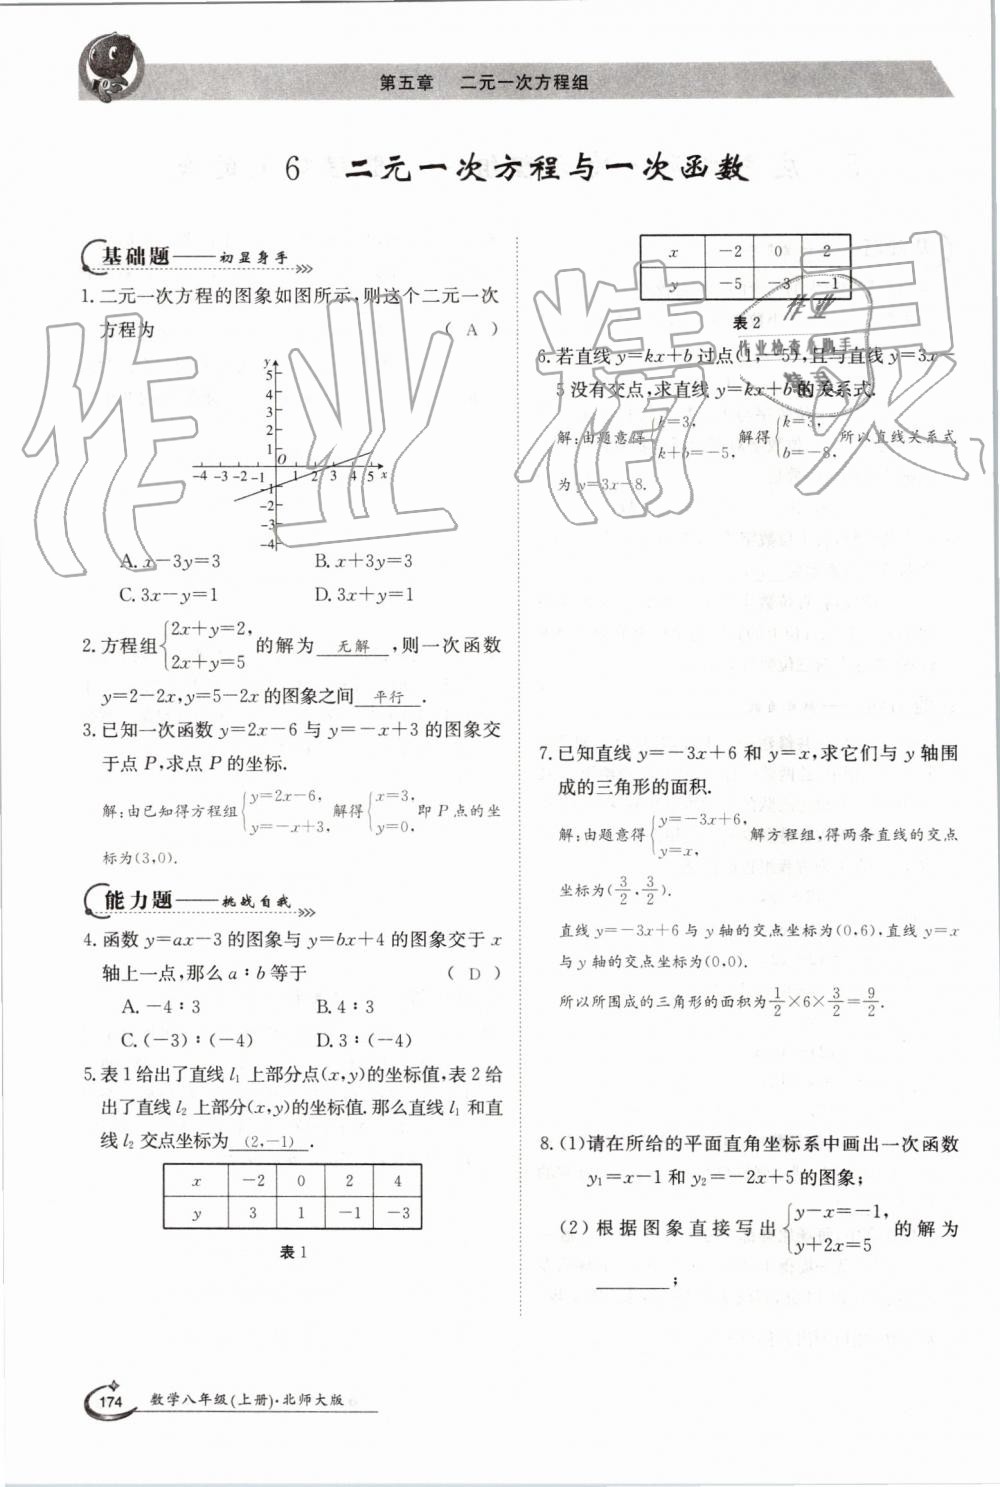 第五章 二元一次方程组
6 二元一次方程与一次函数
基础题——初显身手
1. 二元一次方程的图象如图所示,则这个二元一次
方程为 ( A )
y
5
4
3
2
1
O
-4 -3 -2 -1 1 2 3 4 5 x
-1
-2
-3
-4
A. x-3y=3 B. x+3y=3
C. 3x-y=1 D. 3x+y=1
2. 方程组{2x+y=2, 2x+y=5 的解为 无解 ,则一次函数
y=2-2x,y=5-2x 的图象之间 平行 .
3. 已知一次函数 y=2x-6 与 y=-x+3 的图象交
于点 P,求点 P 的坐标.
解:由已知得方程组{y=2x-6, y=-x+3, 解得{x=3, y=0, 即 P 点的坐
标为(3,0).
能力题——挑战自我
4. 函数 y=ax-3 的图象与 y=bx+4 的图象交于 x
轴上一点,那么 a∶b 等于 ( D )
A. -4∶3 B. 4∶3
C. (-3)∶(-4) D. 3∶(-4)
5. 表 1 给出了直线 l₁ 上部分点(x,y)的坐标值,表 2 给
出了直线 l₂ 上部分(x,y)的坐标值. 那么直线 l₁ 和直
线 l₂ 交点坐标为 (2,-1) .
x -2 0 2 4
y 3 1 -1 -3
表 1
174 数学八年级(上册)·北师大版
x -2 0 2
y -5 -3 -1
表 2
6. 若直线 y=kx+b 过点(1,-5),且与直线 y=3x-
5 没有交点,求直线 y=kx+b 的关系式.
解:由题意得{k=3, k+b=-5, 解得{k=3, b=-8, 所以直线关系式
为 y=3x-8.
7. 已知直线 y=-3x+6 和 y=x,求它们与 y 轴围
成的三角形的面积.
解:由题意得{y=-3x+6, y=x, 解方程组,得两条直线的交点
坐标为(3/2,3/2).
直线 y=-3x+6 与 y 轴的交点坐标为(0,6),直线 y=x
与 y 轴的交点坐标为(0,0).
所以所围成的三角形的面积为 1/2×6×3/2=9/2.
8. (1)请在所给的平面直角坐标系中画出一次函数
y₁=x-1 和 y₂=-2x+5 的图象;
(2)根据图象直接写出{y-x=-1, y+2x=5 的解为
______;
作业精灵
作业
作业检查小助手
精灵